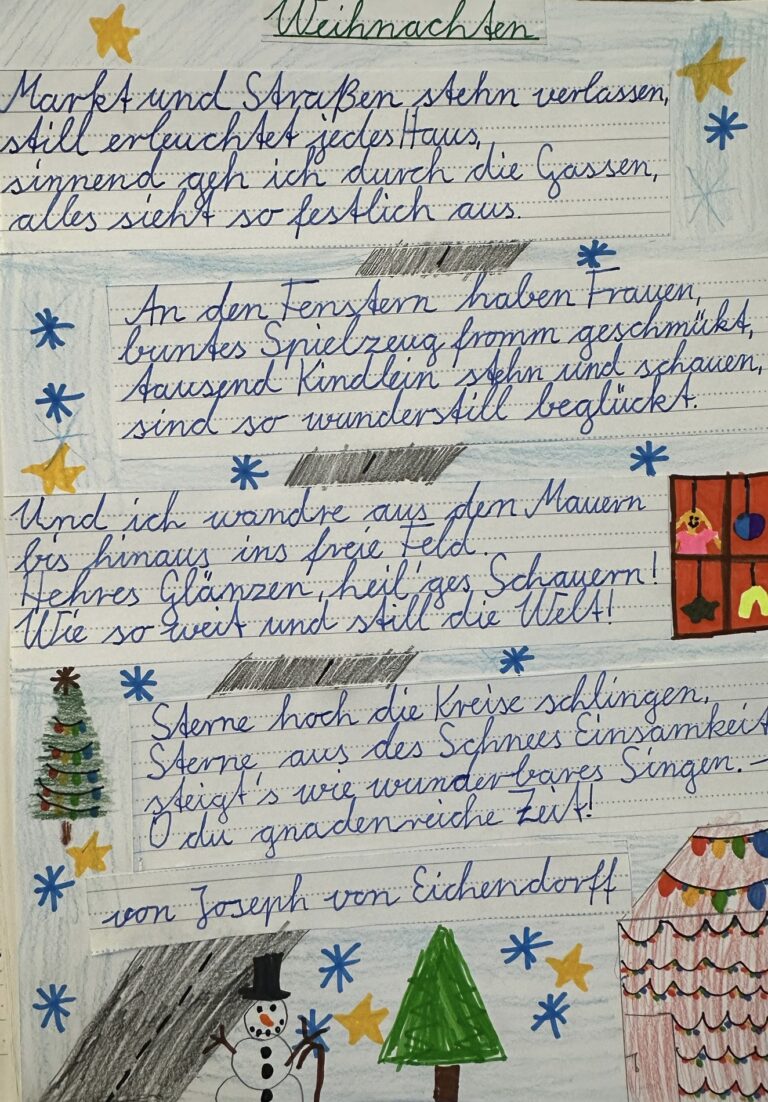 Weihnachten
Markt und Straßen stehn verlassen,
still erleuchtet jedes Haus,
sinnend geh ich durch die Gassen,
alles sieht so festlich aus.
An den Fenstern haben Frauen,
buntes Spielzeug fromm geschmükt,
tausend Kindlein stehn und schauen,
sind so wunderstill beglückt.
Und ich wandre aus den Mauern
bis hinaus ins freie Feld.
Hehres Glänzen, heil'ges Schauern!
Wie so weit und still die Welt!
Sterne hoch die Kreise schlingen,
Sterne, aus des Schnees Einsamkeit
steigt's wie wunderbares Singen. –
O du gnadenreiche Zeit!
von Joseph von Eichendorff